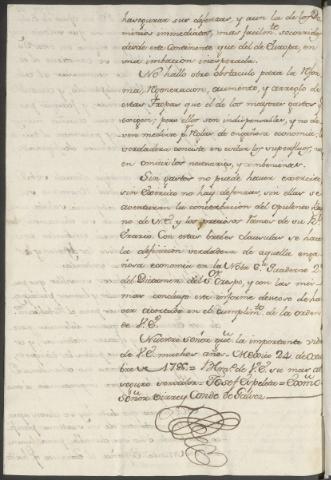 hasegurar sus defensas, y aun la de los Do-
minios immediatos, mas facilm.te socorridos
desde este Continente que del de Europa, en
una imbacion inesperada.
No hallo otro obstaculo para la Refor-
ma, Regeneracion, aumento, y arreglo de
estas Tropas que el de los mayores gastos q.e
exigen; pero ellos son indispensables, y no de-
ven medirse p.r Reglas de engañosa economia: la
verdadera consiste en evitar los superfluos, no
en omitir los necesarios, y combenientes.
Sin gastos no puede haver exercito,
sin Exercito no hay defensas, sin ellas se
aventura la conservacion del opulento Rei-
no de N.E. y los preciosos ramos de su R.l
Erario. Con estas breves clausulas se hace
la definicion verdadera de aquella enga-
ñosa economia en la Nota 6.a Quaderno 2.o
del Dictamen del S.or Crespo, y con las mis-
mas concluyo este informe deseoso de ha-
ver acertado en el cumplim.to de la orden
de V.E.
Nuestro Señor gu.e la importante vida
de V.E. muchos años. Mexico 24 de
bre de 1785 = Ex.mo S.or = de V.E. su mas
seguro servidor = Josef Ezpeleta = Exmo
Señor Virrey Conde de Galvez.